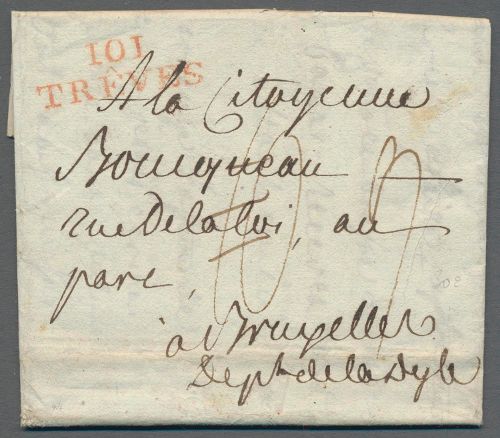 101
TRÈVES
A la Citoyenne
rue De la Loi, au
parc,
a Bruxelles
Dept de la Dyle